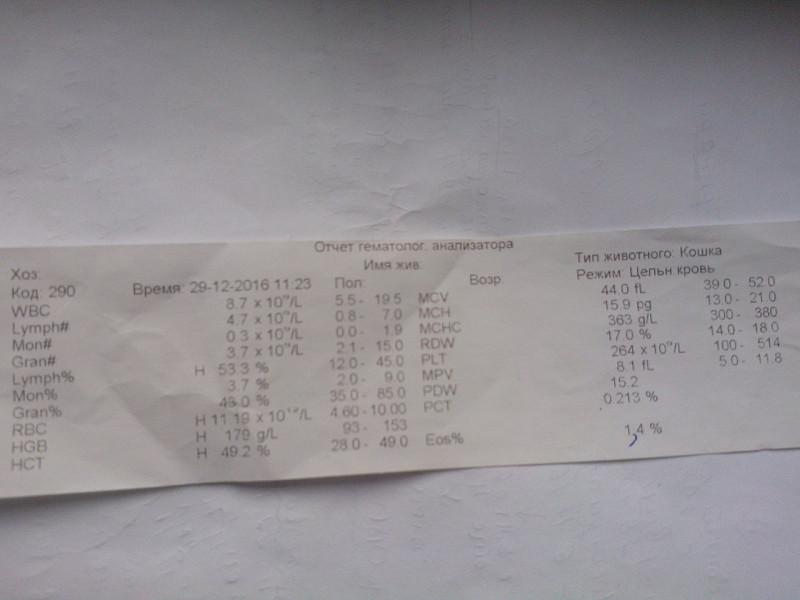 Отчет гематолог. анализатора
Хоз: Имя жив: Тип животного: Кошка
Код: 290 Время: 29-12-2016 11:23 Пол: Возр Режим: Цельн кровь
WBC 8.7 x 10⁹/L 5.5 - 19.5 MCV 44.0 fL 39.0 - 52.0
Lymph# 4.7 x 10⁹/L 0.8 - 7.0 MCH 15.9 pg 13.0 - 21.0
Mon# 0.3 x 10⁹/L 0.0 - 1.9 MCHC 363 g/L 300 - 380
Gran# 3.7 x 10⁹/L 2.1 - 15.0 RDW 17.0 % 14.0 - 18.0
Lymph% H 53.3 % 12.0 - 45.0 PLT 264 x 10⁹/L 100 - 514
Mon% 3.7 % 2.0 - 9.0 MPV 8.1 fL 5.0 - 11.8
Gran% 43.0 % 35.0 - 85.0 PDW 15.2
RBC H 11.19 x 10¹²/L 4.60 - 10.00 PCT 0.213 %
HGB H 179 g/L 93 - 153
HCT H 49.2 % 28.0 - 49.0 Eos% 1,4 %